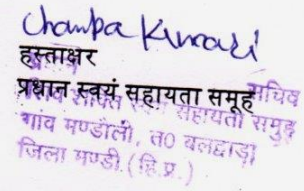 Champa Kumari
हस्ताक्षर
प्रधान स्वयं सहायता समूह
सचिव
सहायता समुह
गांव मण्डौली, त० बलद्वाड़ा
जिला मण्डी (हि.प्र.)